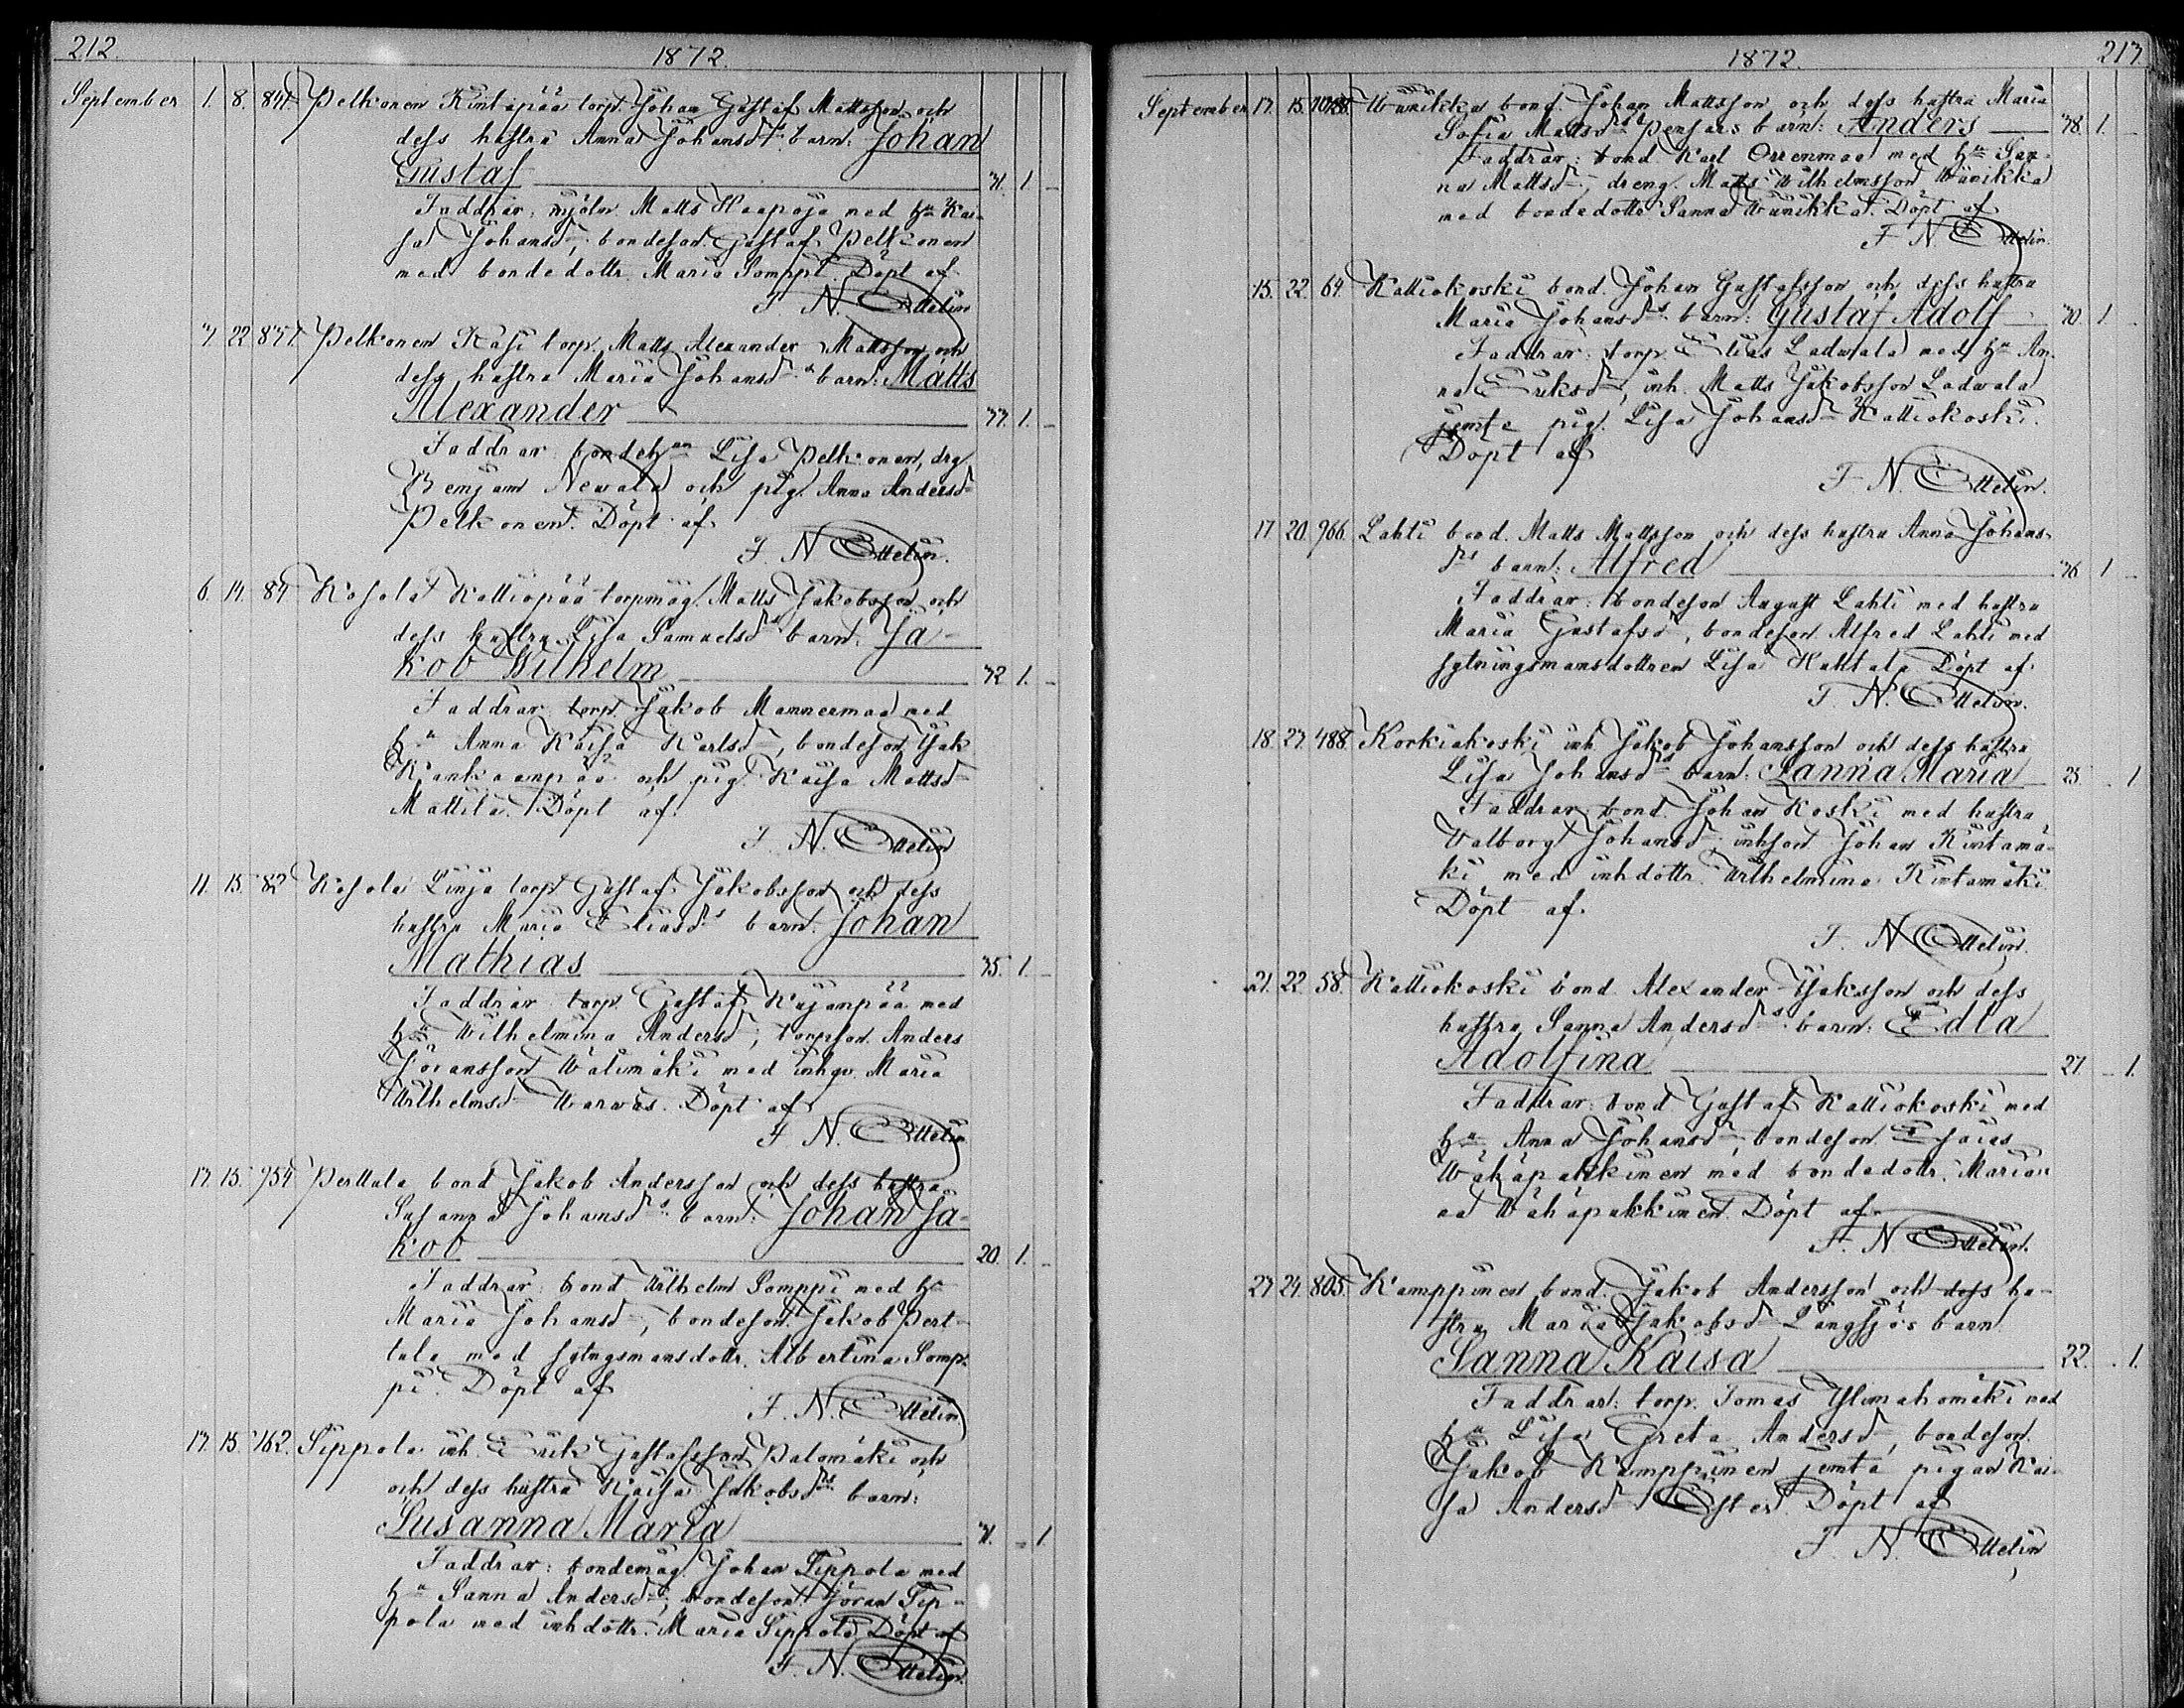 212.
1872.
September 1. 8. 841. Pelkonen Kintapää torp. Johan Gustaf Mattsson och
dess hustru Anna Johansdrs barn: Johan
Gustaf 31. 1. -
Faddrar: mjöln. Matts Haapoja med hu Kai-
sa Johansdr, bondeson Gustaf Pelkonen
med bondedottr. Maria Somppi. Döpt af
F. N. Ottelin
3. 22. 851. Pelkonen Kasi torp. Matts Alexander Mattsson och
dess hustru Maria Johansdrs barn: Matts
Alexander 33. 1. -
Faddrar: Lisa Pelkonen, drg.
Benjam Newala och pig. Anna Andersdr
Pelkonen. Döpt af
F. N. Ottelin.
6. 14. 84. Kosola Kalliopää torpmåg Matts Jakobsson och
dess hustru Lisa Samuelsdrs barn: Ja-
kob Wilhelm 32 1. -
Faddrar torp. Jakob Mannermaa med
hu Anna Kaisa Karlsdr, bondeson Isak
Kankaanpää och pig. Kaisa Mattsdr
Mattila. Döpt af.
F. N. Ottelin
11. 15. 82 Kosola Linja torp. Gustaf Jakobsson och dess
hustru Maria Eliasdrs barn: Johan
Mathias 35. 1. -
Faddrar torp. Gustaf Kajanpää med
hu Wilhelmina Andersdr, torpson Anders
Göransson Wälimäki med inhqv. Maria
Wilhelmsdr Warwas. Döpt af
F. N. Ottelin
13. 15. 954. Perttula bond Jakob Andersson och dess hustru
Susanna Johansdrs barn: Johan Ja-
kob 20. 1. -
Faddrar: bond Wilhelm Somppi med hu
Maria Johansdr, bondeson Jakob Pert-
tula med sytngsmansdottr. Albertina Somp-
pi. Döpt af
F. N. Ottelin
13. 15. 162. Sippola inh. Erik Gustafsson Palomäki och
och dess hustru Kaisa Jakobsdrs barn:
Susanna Maria 31. - 1.
Faddrar: bondemåg Johan Sippola med
hu Sanna Andersdr, bondeson Göran Sip-
pola med inhdottr. Maria Sippola Döpt af
F. N. Ottelin.
1872.
213
September 13. 15. Wainikka bond. Johan Mattsson och dess hustru Maria
Sofia Mattsdr barn: Anders 38. 1. -
Faddrar: bond. Karl Orrenmaa med hu San-
na Mattsdr, dreng. Matts Wilhelmsson Wainikka
med bondedottr Sanna Wainikka. Döpt af
F. N. Ottelin.
15. 22. 64. Kalliokoski bond. Johan Gustafsson och dess hustru
Maria Johansdrs barn: Gustaf Adolf 30. 1. -
Faddrar: torp. Elias Ladwala med hu An-
na Eriksdr, inh. Matts Jakobsson Ladwala
jemte pig. Lisa Johansdr Kalliokoski.
Döpt af
F. N. Ottelin.
17. 20. 966. Lahti bond. Matts Mattsson och dess hustru Anna Johans-
drs barn: Alfred 36 1 -
Faddrar: bondeson August Lahti med hustru
Maria Gustafsdr, bondeson Alfred Lahti med
sytningsmansdottren Lisa Kahtala Döpt af
F. N. Ottelin.
18. 23. 488. Korkiakoski inh Jakob Johansson och dess hustru
Lisa Johansdrs barn: Sanna Maria 25. . 1
Faddrar bond. Johan Koski med hustru
Walborg Johansdr inhson Johan Kintamä-
ki med inhdottr. Wilhelmina Kintamäki
Döpt af.
F. N. Ottelin.
21. 22. 58. Kalliokoski bond. Alexander Isaksson och dess
hustru Sanna Andersdrs barn: Edla
Adolfina 27. - 1.
Faddrar: bond Gustaf Kalliokoski med
hu Anna Johansdr, bondeson Esaias
Wähäpakkinen med bondedottr. Maria
Wähäpakkinen. Döpt af.
F. N. Ottelin.
23. 24. 805. Kamppinen bond. Jakob Andersson och dess hu-
stru Maria Jakobsdr Långsjös barn
Sanna Kaisa 22. . 1.
Faddrar: torp. Tomas med
hu Lisa Greta Andersdr, bondeson
Jakob Kamppinen jemte pigan Kai-
sa Andersdr Öster. Döpt af
F. N. Ottelin